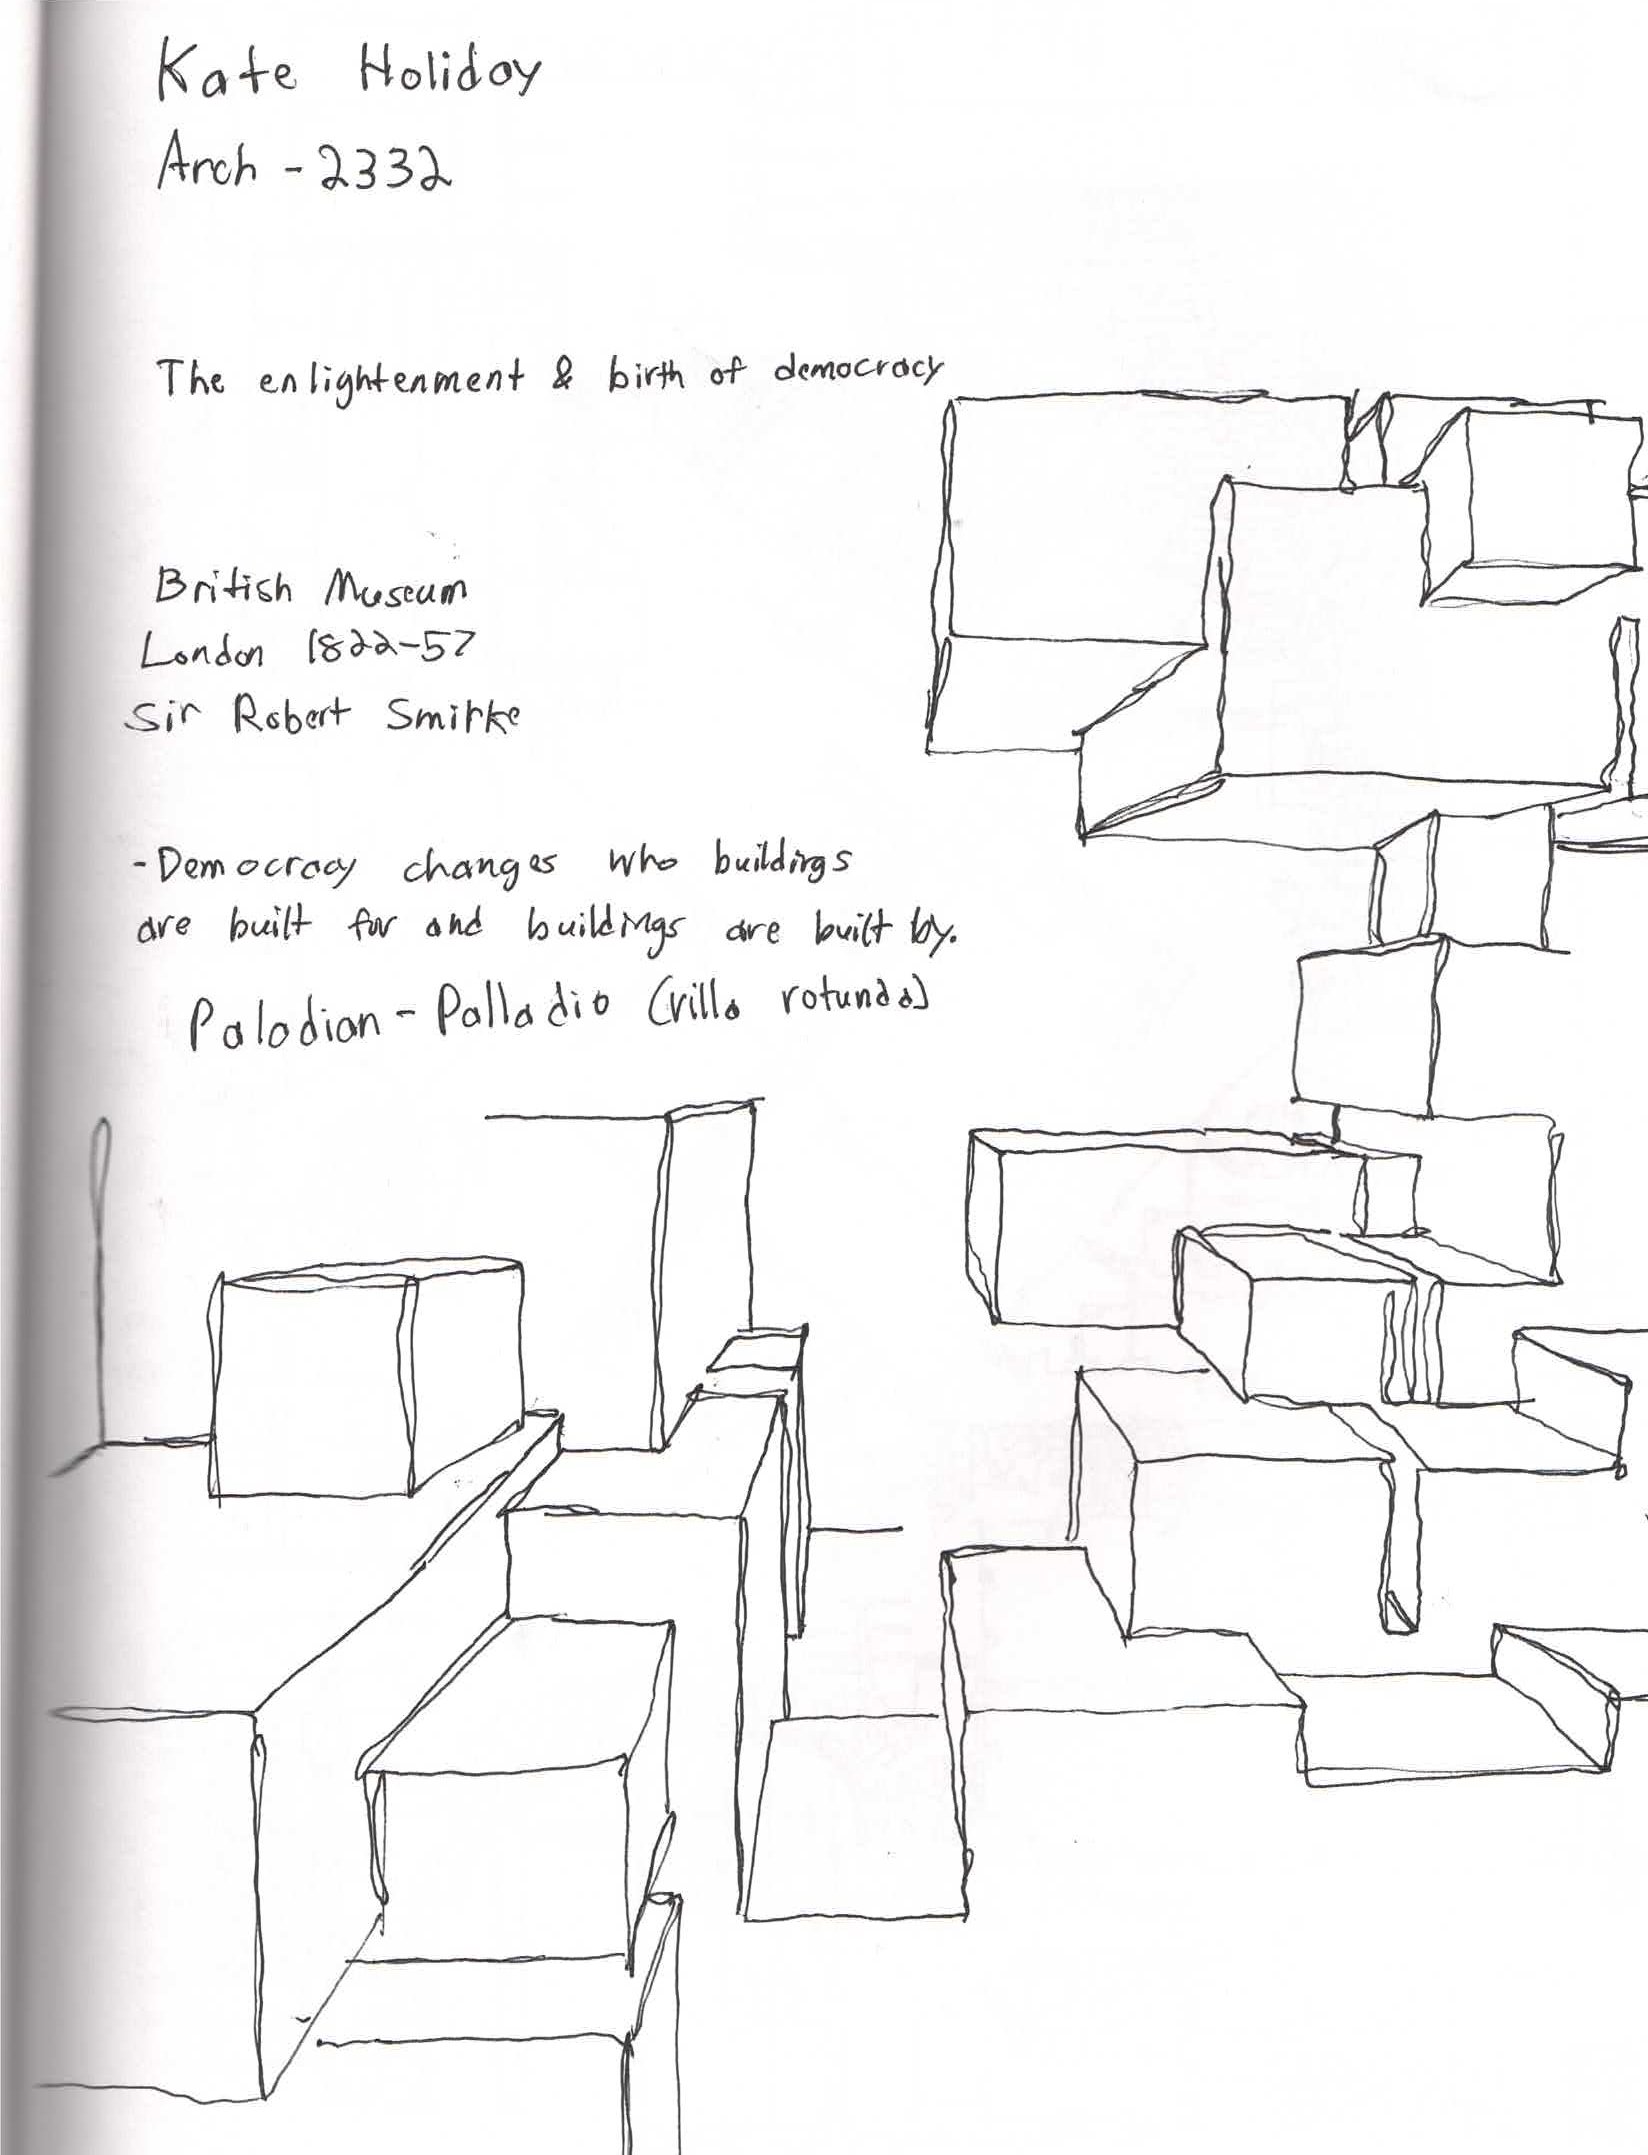 Kate Holiday
Arch - 2332
The enlightenment & birth of democracy
British Museum
London 1822-57
Sir Robert Smirke
- Democracy changes who buildings
are built for and buildings are built by.
Paladian - Palladio (villa rotunda)